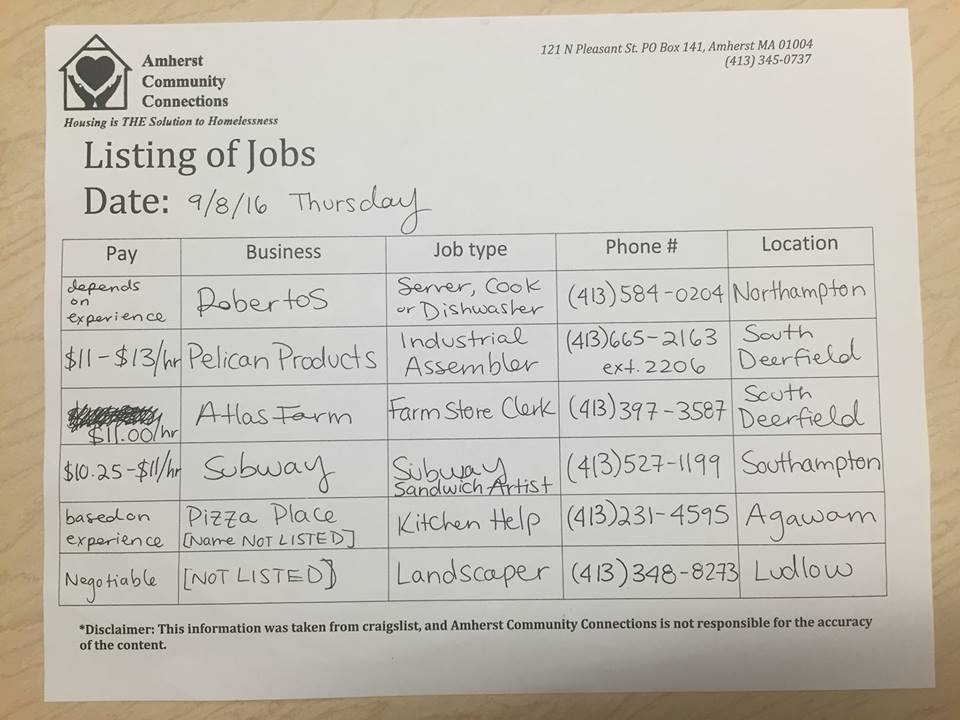 Amherst
Community
Connections
Housing is THE Solution to Homelessness
121 N Pleasant St. PO Box 141, Amherst MA 01004
(413) 345-0737
Listing of Jobs
Date: 9/8/16 Thursday
Pay Business Job type Phone # Location
depends
on
experience
Robertos
Server, Cook
or Dishwasher
(413)584-0204
Northampton
$11-$13/hr
Pelican Products
Industrial
Assembler
(413)665-2163
ext. 2206
South
Deerfield
$11.00/hr
Atlas Farm
Farm Store Clerk
(413)397-3587
South
Deerfield
$10.25-$11/hr
Subway
Subway
Sandwich Artist
(413)527-1199
Southampton
based on
experience
Pizza Place
[Name NOT LISTED]
Kitchen Help
(413)231-4595
Agawam
Negotiable
[NOT LISTED]
Landscaper
(413)348-8273
Ludlow
*Disclaimer: This information was taken from craigslist, and Amherst Community Connections is not responsible for the accuracy
of the content.